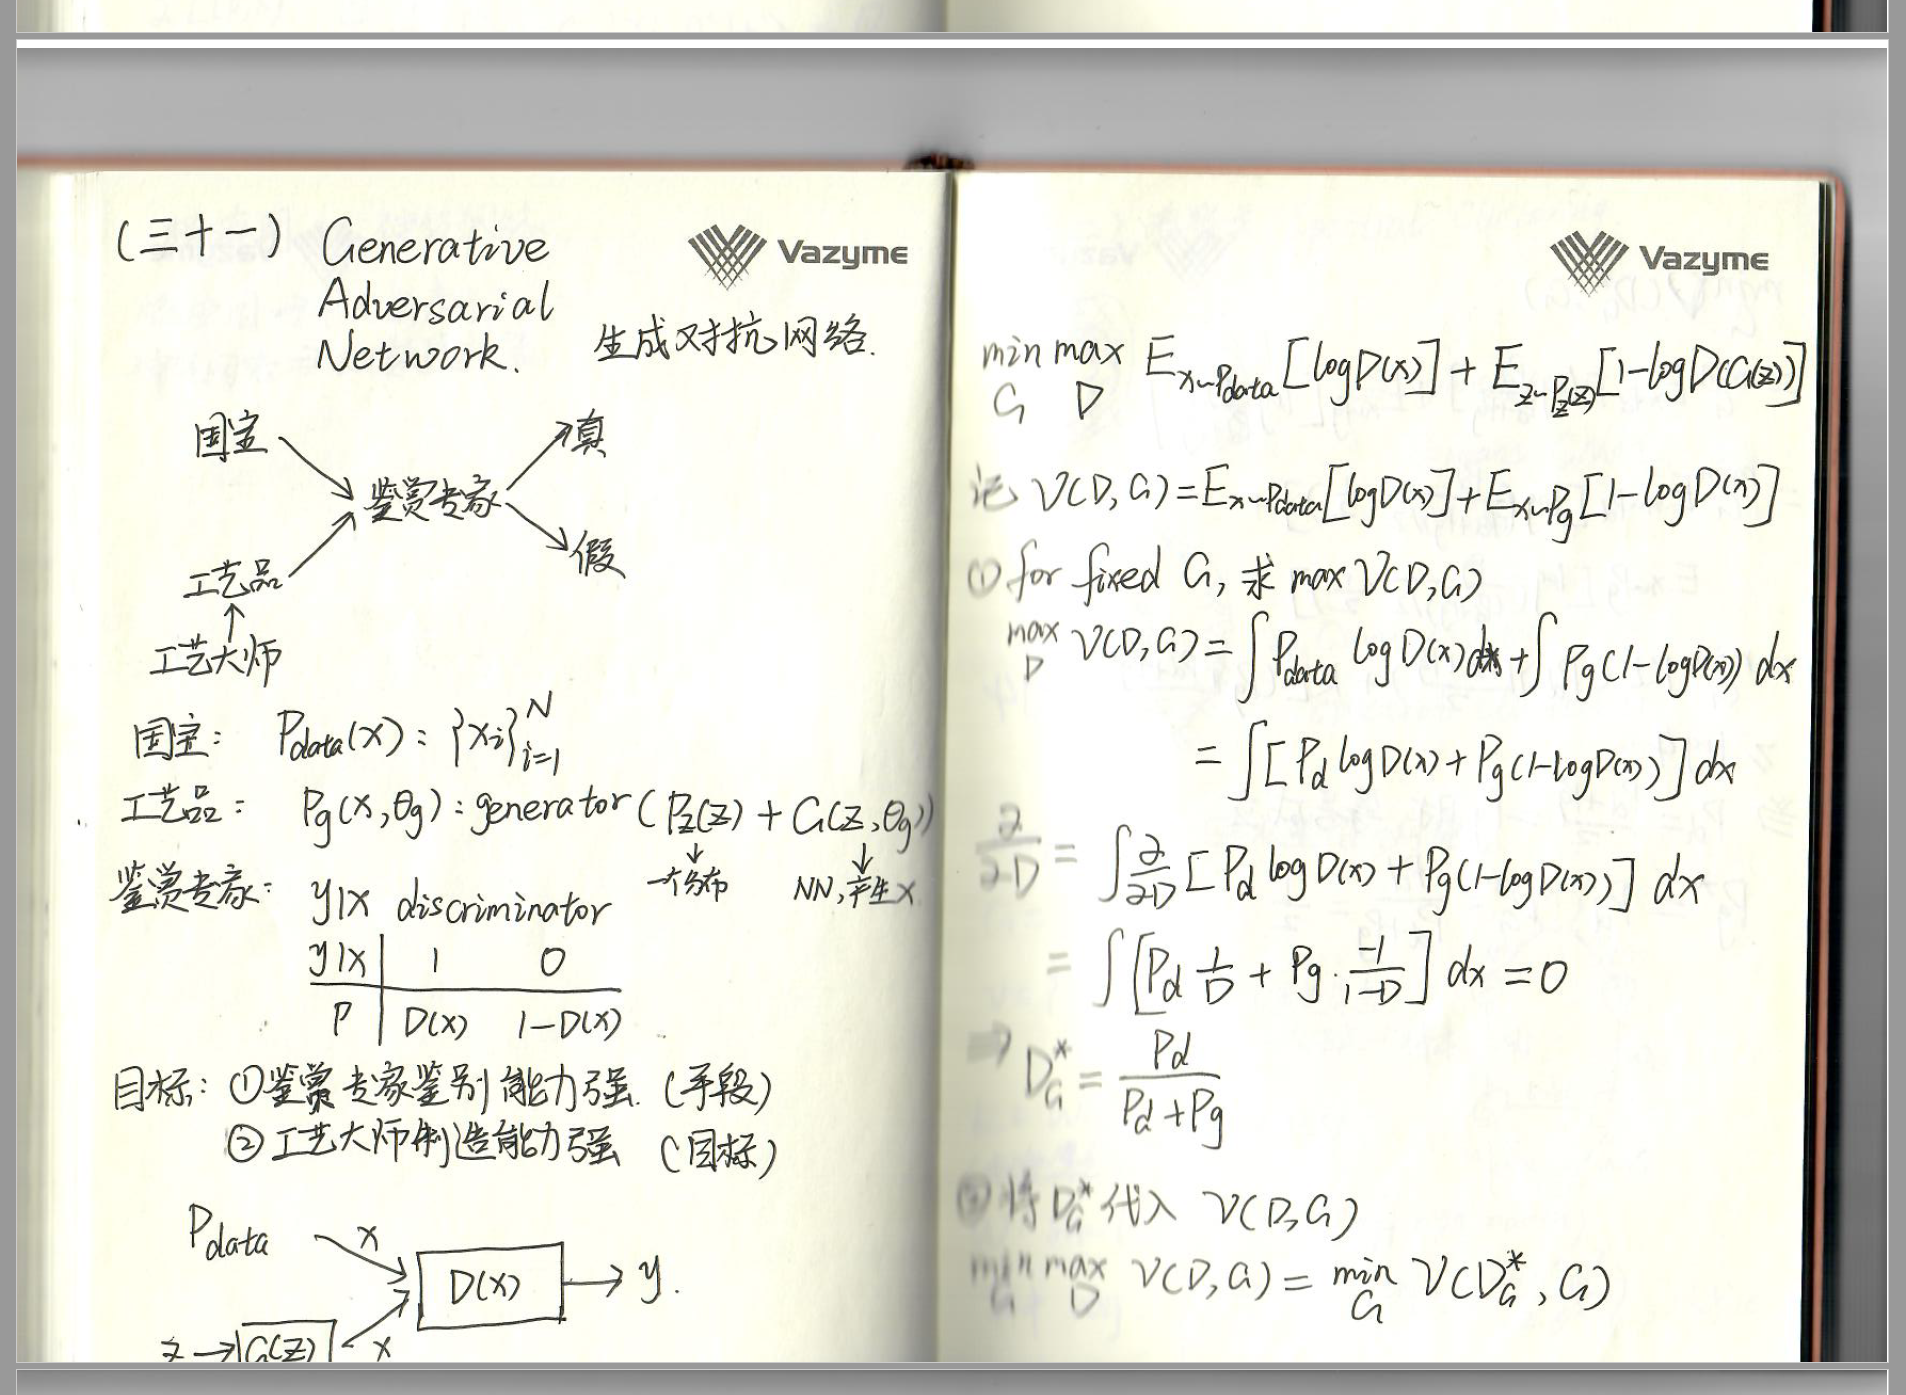 (三十一) Generative
Adversarial
Network.
生成对抗网络.
Vazyme
国宝
真
鉴赏专家
假
工艺品
↑
工艺大师
国宝: Pdata(x): {xi}_{i=1}^{N}
工艺品: Pg(x,θg): generator (Pz(z) + G(z,θg))
↓ ↓
一个分布 NN,产生x
鉴赏专家: y|x discriminator
y|x 1 0
P D(x) 1-D(x)
目标: ①鉴赏专家鉴别能力强. (手段)
②工艺大师制造能力强 (目标)
Pdata x
D(x) → y.
z → G(z) x
Vazyme
min_G max_D E_{x~Pdata}[logD(x)] + E_{z~Pz(z)}[1-logD(G(z))]
记 V(D,G) = E_{x~Pdata}[logD(x)] + E_{x~Pg}[1-logD(x)]
① for fixed G, 求 max V(D,G)
max_D V(D,G) = ∫ Pdata log D(x) dx + ∫ Pg(1-logD(x)) dx
= ∫[Pd logD(x) + Pg(1-logD(x))] dx
∂/∂D = ∫ ∂/∂D [Pd log D(x) + Pg(1-logD(x))] dx
= ∫[Pd 1/D + Pg · -1/(1-D)] dx = 0
⇒ D*_G = Pd/(Pd+Pg)
② 将 D*_G 代入 V(D,G)
min_G max_D V(D,G) = min_G V(D*_G, G)